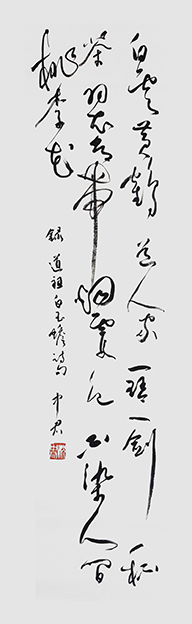 白雲黄鶴道人家一琴一剑一杯
茶羽衣常带烟霞色不染人间
桃李花
録道祖白玉蟾诗句